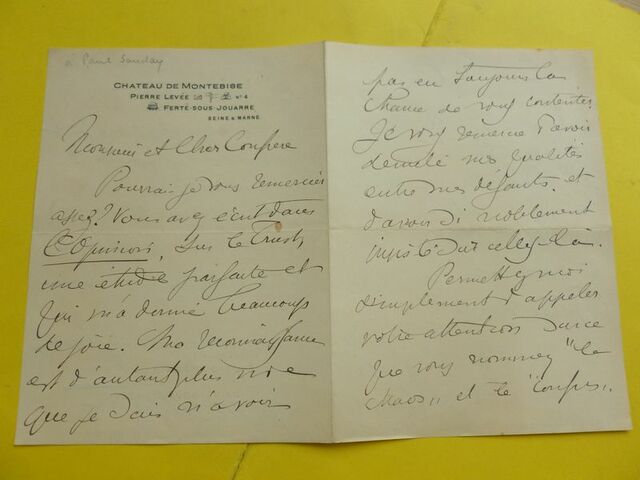 à Paul Souday
CHATEAU DE MONTEBISE
PIERRE LEVÉE N° 4
FERTÉ-SOUS-JOUARRE
SEINE & MARNE
Monsieur et Cher Confrere
Pourrai-je vous remercier
assez? Vous avez écrit dans
L'Opinion, sur le Trust,
une étude parfaite et
qui m'a donné beaucoup
de joie. Ma reconnaissance
est d'autant plus vive
que je dois n'avoir
pas eu toujours la
chance de vous contenter.
Je vous remercie d'avoir
démêlé mes qualités
entre mes défauts, et
d'avoir si noblement
insisté sur celles-là.
Permettez moi
simplement d'appeler
votre attention sur ce
que vous nommez "le
chaos" et le "confus"